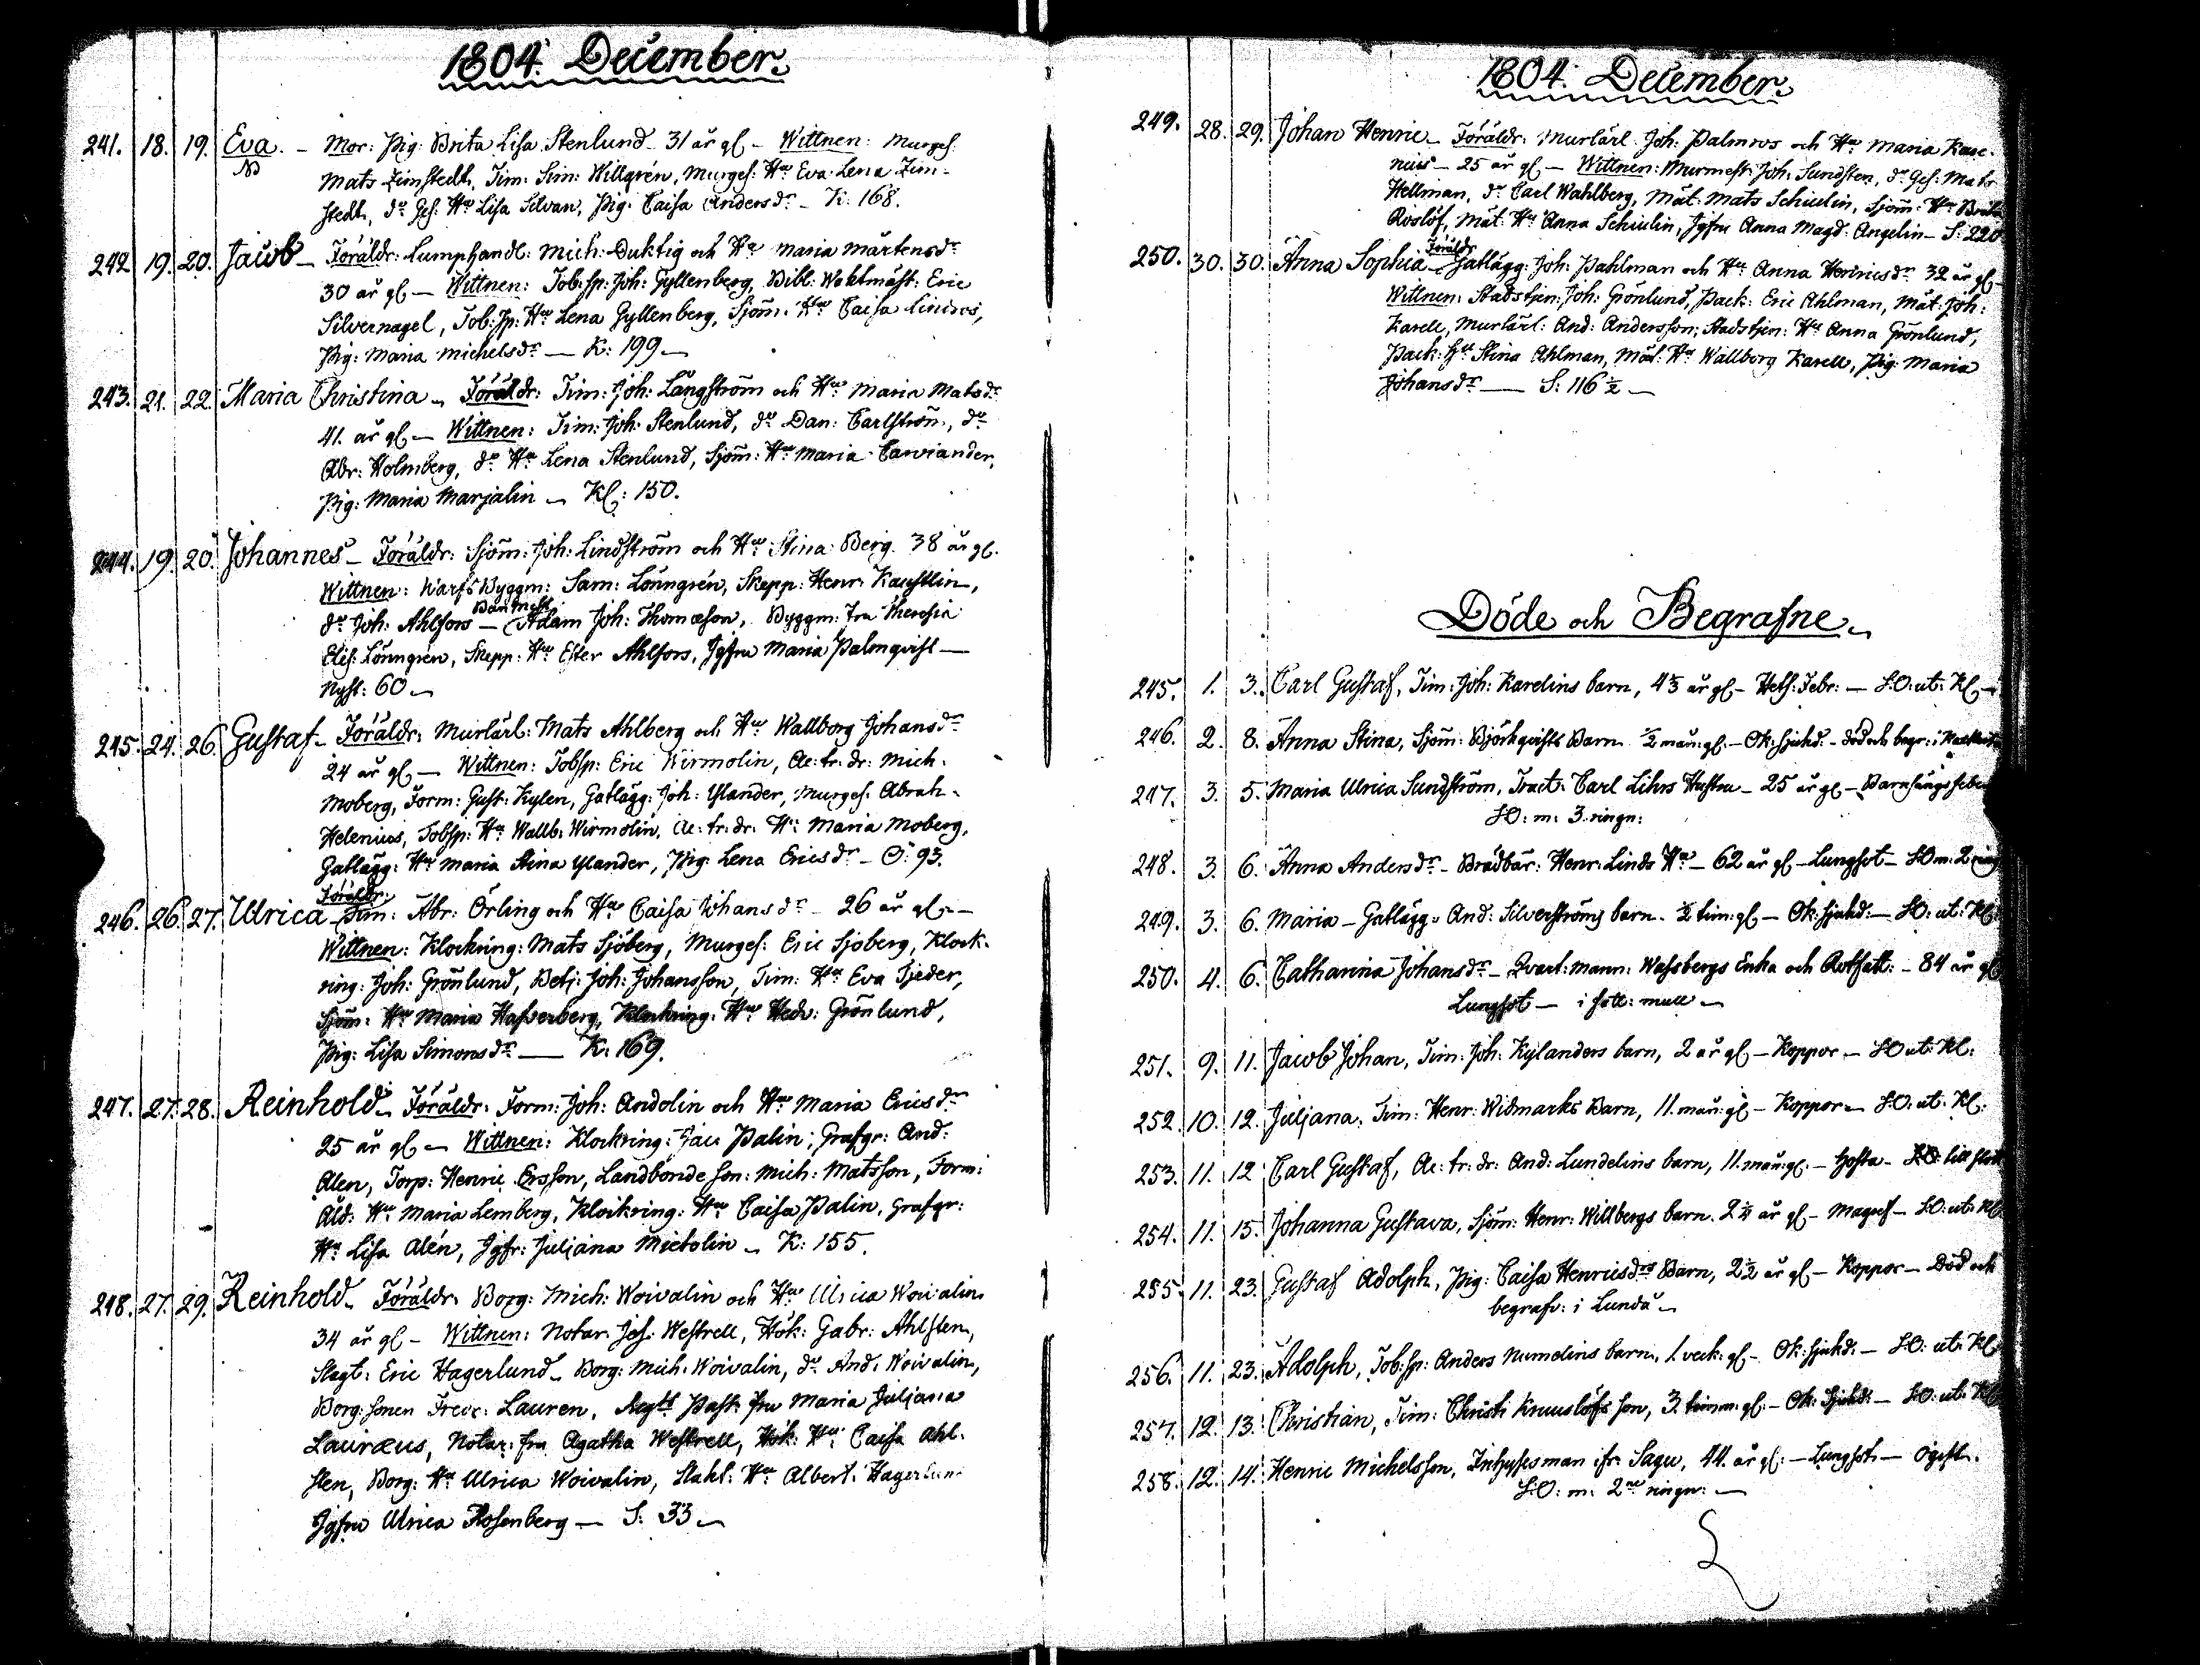 1804. December.
241. 18. 19. Eva. – Mor: Pig: Brita Lisa Stenlund 31 år gl – Wittnen: Murges:
Mats Zimstedt, Tim: Sim: Willgrén, Murges: Hu Eva Lena Zim-
stedt, do Ges: Hu Lisa Silvan, Pig: Caisa Andersdr – K: 168.
242 19. 20. Jacob – Föräldr: Lumphandl: Mich: Duktig och Hu Maria Mårtensdr
30 år gl – Wittnen: Tob:sp: Joh: Gyllenberg, Bibl: Waktmäst: Eric
Silvernagel, Tob:sp: Hu Lena Gyllenberg, Sjöm: Hu Caisa Lindros,
Pig: Maria Michelsdr – K: 199 –
243. 21. 22. Maria Christina – Föräldr: Tim: Joh: Långström och Hu Maria Matsdr
41. år gl – Wittnen: Tim: Joh: Stenlund, do Dan: Carlström, do
Abr: Holmberg, do Hu Lena Stenlund, Sjöm: Hu Maria Carviander,
Pig: Maria Marjalin – Kl: 150.
244. 19. 20. Johannes – Föräldr: Sjöm: Joh: Lindström och Hu Stina Berg. 38 år gl.
Wittnen: Warfs Byggm: Sam: Lönngrén, Skepp: Henr: Kaustlin,
do Joh: Ahlfors – Adam Joh: Thomæson, Byggm: fru Theresia
Elis: Lönngrén, Skepp: Hu Ester Ahlfors, Jgfru Maria Palmqvist –
Nyst: 60 –
245. 24. 26. Gustaf – Föräldr: Murlärl: Mats Ahlberg och Hu Wallborg Johansdr
24 år gl – Wittnen: Tobsp: Eric Wirmolin, Ac: tr: dr: Mich:
Moberg, Form: Gust: Kylen, Gatlägg: Joh: Ylander, Murges: Abrah:
Helenius, Tobsp: Hu Wallb: Wirmolin, Ac: tr: dr: Hu Maria Moberg,
Gatlägg: Hu Maria Stina Ylander, Pig: Lena Ericsdr – O: 93.
246. 26. 27. Ulrica – Föräldr: Tim: Abr: Örling och Hu Caisa Johansdr – 26 år gl –
Wittnen: Klockring: Mats Sjöberg, Murges: Eric Sjöberg, Klock-
ring: Joh: Grönlund, Betj: Joh: Johansson, Tim: Hu Eva Tjeder,
Sjöm: Hu Maria Hafverberg, Klockring: Hu Hedv: Grönlund,
Pig: Lisa Simonsdr – K: 169.
247. 27. 28. Reinhold – Föräldr: Form: Joh: Andolin och Hu Maria Ericsdr
25 år gl – Wittnen: Klockring: Jac: Palin, Grafgr: And:
Alen, Torp: Henric Ersson, Landbonde son: Mich: Matsson, Form:
Åld: Hu Maria Lemberg, Klockring: Hu Caisa Palin, Grafgr:
Hu Lisa Alén, Jgfr: Juliana Mietolin – K: 155.
248. 27. 29. Reinhold – Föräldr: Borg: Mich: Woivalin och Hu Ulrica Woivalin
34 år gl – Wittnen: Notar: Jos: Westrell, Hök: Gabr: Ahlsten,
Slagt: Eric Hagerlund – Borg: Mich: Woivalin, do And: Woivalin,
Borg: sonen Fredr: Lauren, Past: fru Maria Juljana
Lauræus, Notar: fru Agatha Westrell, Hök: Hu Caisa Ahl-
sten, Borg: Hu Ulrica Woivalin, Hu Albert: Hagerlund
Jgfru Ulrica Rosenberg – S: 33 –
1804. December.
249. 28. 29. Johan Henric – Föräldr: Murlärl: Joh: Palmros och Hu Maria Kare-
nius – 25 år gl – Wittnen: Murmest: Joh: Sundsten, do Ges: Mats
Hellman, do Carl Wahlberg, Mät: Mats Schiulin, Sjöm: Hu Brita
Roslöf, Mät: Hu Anna Schiulin, Jgfru Anna Magd: Angelin – S: 220
250. 30. 30. Anna Sophia – Föräldr: Gatlägg: Joh: Pahlman och Hu Anna Henricsdr 32 år gl –
Wittnen: Stadstjen: Joh: Grönlund, Pack: Eric Ahlman, Mät: Joh:
Karell, Murlärl: And: Andersson, Stadstjen: Hu Anna Grönlund,
Pack: Hu Stina Ahlman, Mät: Hu Wallborg Karell, Pig: Maria
Johansdr – S: 116 ½ –
Döde och Begrafne –
245. 1. 3. Carl Gustaf, Tim: Joh: Karelins barn, år gl – Hets: Febr: – S.O: ut: Kl –
246. 2. 8. Anna Stina, Sjöm: Björkqvists Barn ½ mån: gl. – Ok: sjukd: – död och begr: i
247. 3. 5. Maria Ulrica Sundström, Tract: Carl Lihrs Hustru – 25 år gl – Barnsängsfeber
SO: m: 3. ringn:
248. 3. 6. Anna Andersdr – Brädbär: Henr: Linds Hu – 62 år gl – Lungsot – SO m: 2 ring
249. 3. 6. Maria – Gatlägg: And: Silverströms barn. ½ tim: gl – Ok: sjukd: – SO: ut: Kl:
250. 4. 6. Catharina Johansdr – Qvart: mann: Wassbergs Enka och Rotfatt: – 84 år gl
Lungsot – i fatt: mull –
251. 9. 11. Jacob Johan, Tim: Joh: Kylanders barn, 2 år gl – Koppor – SO ut: Kl:
252. 10. 12. Juljana, Tim: Henr: Widmarks Barn, 11. mån: gl – Koppor – SO: ut: Kl:
253. 11. 12 Carl Gustaf, Ac: tr: dr: And: Lundelins barn, 11. mån: gl. – Hosta – SO:
254. 11. 15. Johanna Gustava, Sjöm: Henr: Willbergs barn. 2 ¼ år gl – Magref – SO: ut: Kl
255. 11. 23. Gustaf Adolph, Pig: Caisa Henricsdrs Barn, 2½ år gl – Koppor – Död och
begrafv: i Lundå –
256. 11. 23. Adolph, Tob: sp: Anders Numelins barn, 1. veck: gl – Ok: sjukd: – SO: ut: Kl:
257. 12. 13. Christian, Tim: Christi Knuuslöfs son, 3. timm: gl – Ok: Sjukd: – SO: ut: Kl:
258. 12. 14. Henric Michelsson, Inhysesman ifr: Sagu, 44. år gl: – Lungsot – ogift.
S.O: m: 2ne ringn: –